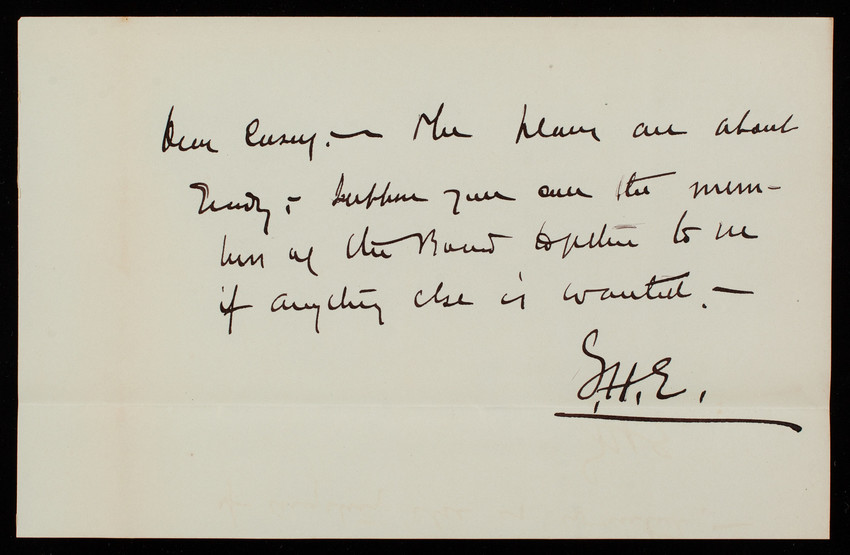 Dear Casey. — The plans are about
ready; — Suppose you call the mem-
bers of the Board together to see
if anything else is wanted. —
G.H.E.